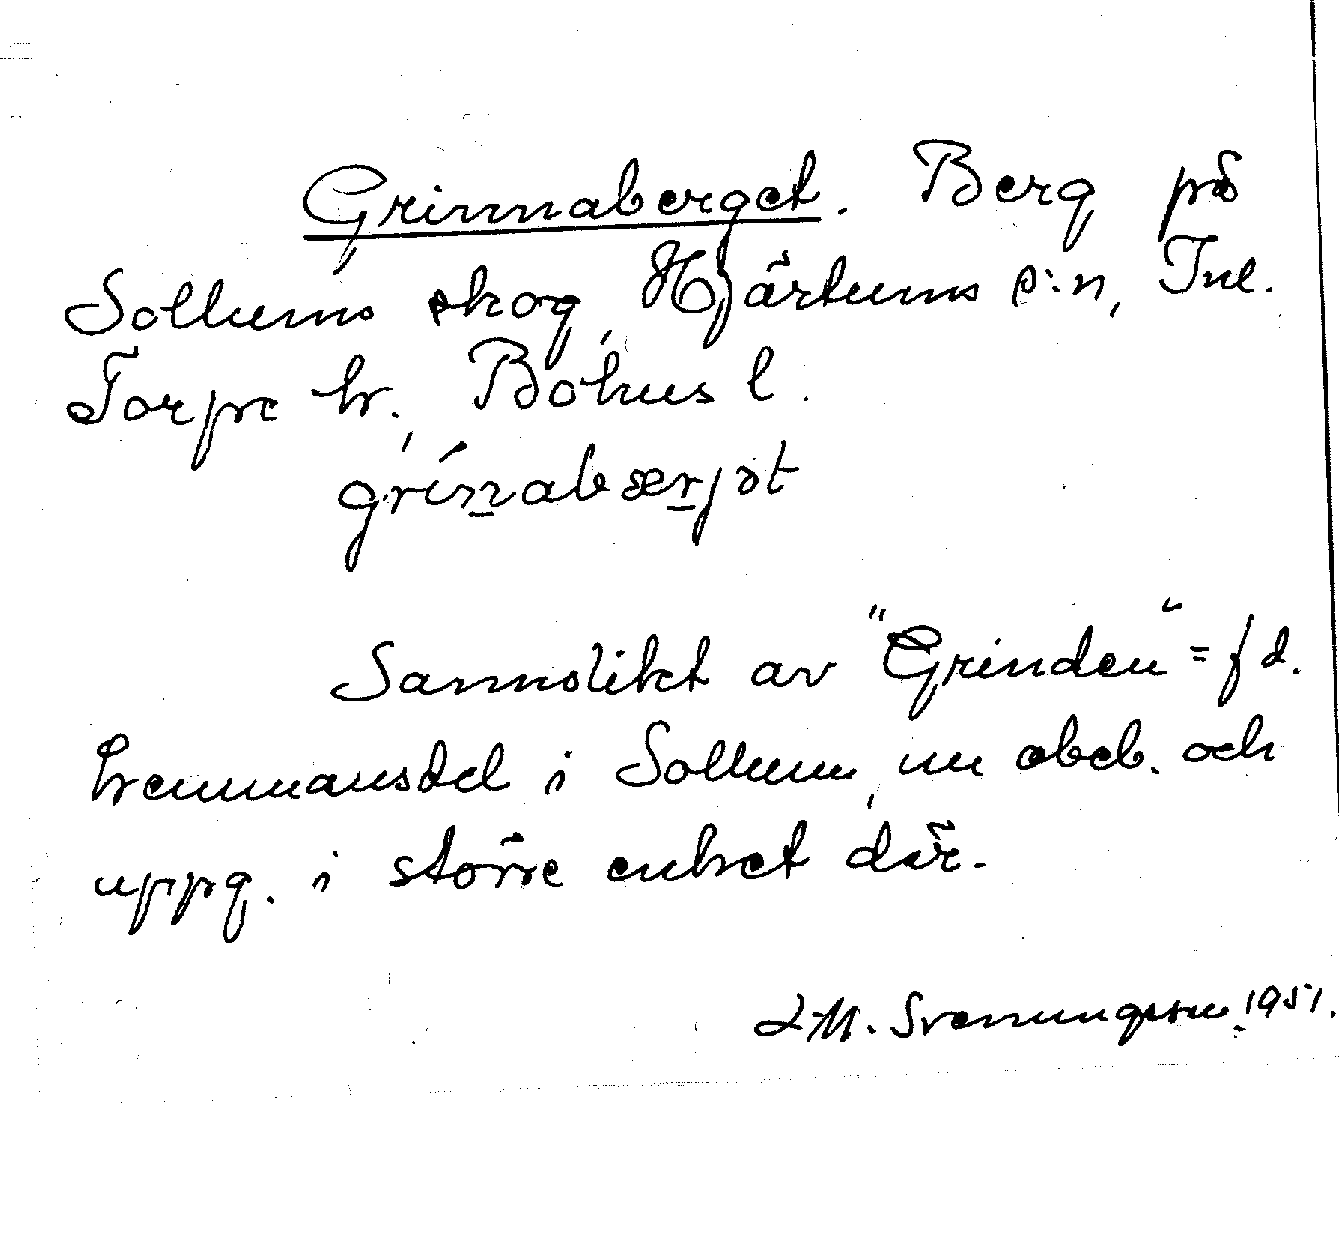 Grinnaberget. Berg på
Sollums skog, Hjärtums s:n, Inl.
Torpe hr., Bohus l.
grínnabærjət
Sannolikt av "Grinden" = f d.
hemmansdel i Sollum, nu obeb. och
uppg. i större enhet där.
L. M. Svenungsson 1951.